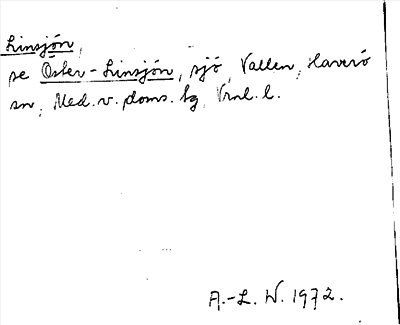 Linsjön,
se Öster-Linsjön, sjö, Vallen, Haverö
sn, Med. v. doms. tg, Vrnl. l.
A.-L. W. 1972.